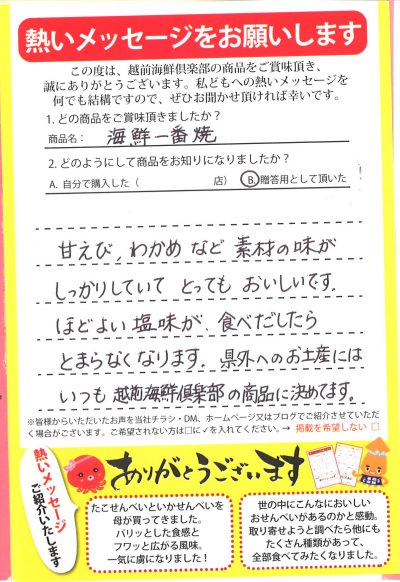 熱いメッセージをお願いします
この度は、越前海鮮倶楽部の商品をご賞味頂き、
誠にありがとうございます。私どもへの熱いメッセージを
何でも結構ですので、ぜひお聞かせ頂ければ幸いです。
1. どの商品をご賞味頂きましたか?
商品名: 海鮮一番焼
2. どのようにして商品をお知りになりましたか?
A. 自分で購入した( 店) B.贈答用として頂いた
甘えび、わかめ など 素材の味が
しっかりしていて とっても おいしいです。
ほどよい 塩味が、食べだしたら
とまらなくなります。県外へのお土産には
いつも 越前海鮮倶楽部の商品に決めてます。
※皆様からいただいたお声を当社チラシ・DM、ホームページ又はブログでご紹介させていただ
く場合がございます。ご希望されない方は□に✓を入れてください。→ 掲載を希望しない □
ありがとうございます
熱いメッセージ
ご紹介いたします
たこせんべいといかせんべいを
母が買ってきました。
パリッとした食感と
フワッと広がる風味。
一気に虜になりました!
世の中にこんなにおいしい
おせんべいがあるのかと感動。
取り寄せようと調べたら他にも
たくさん種類があって、
全部食べてみたくなりました。